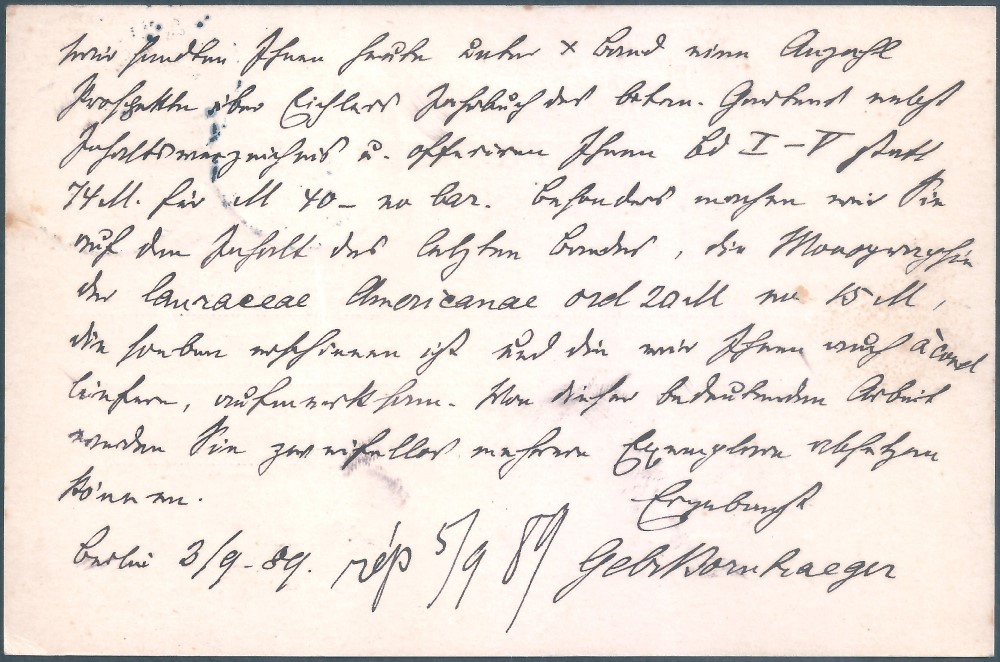 Wir sandten Ihnen heute unter × Band eine Anzahl
Prospekte über Eichlers Jahrbuch des botan. Gartens nebst
Inhaltsverzeichnis u. offeriren Ihnen Bd I–V statt
74 M. für M 40– no bar. Besonders machen wir Sie
auf den Inhalt des letzten Bandes, die Monographie
der Lauraceae Americanae ord 20 M no 15 M,
die soeben erschienen ist und die wir Ihnen auch à cond
liefern, aufmerksam. Von dieser bedeutenden Arbeit
werden Sie zweifellos mehrere Exemplare absetzen
können.
Ergebenst
Berlin 3/9–89. rép 5/9 89 Gebr Borntraeger